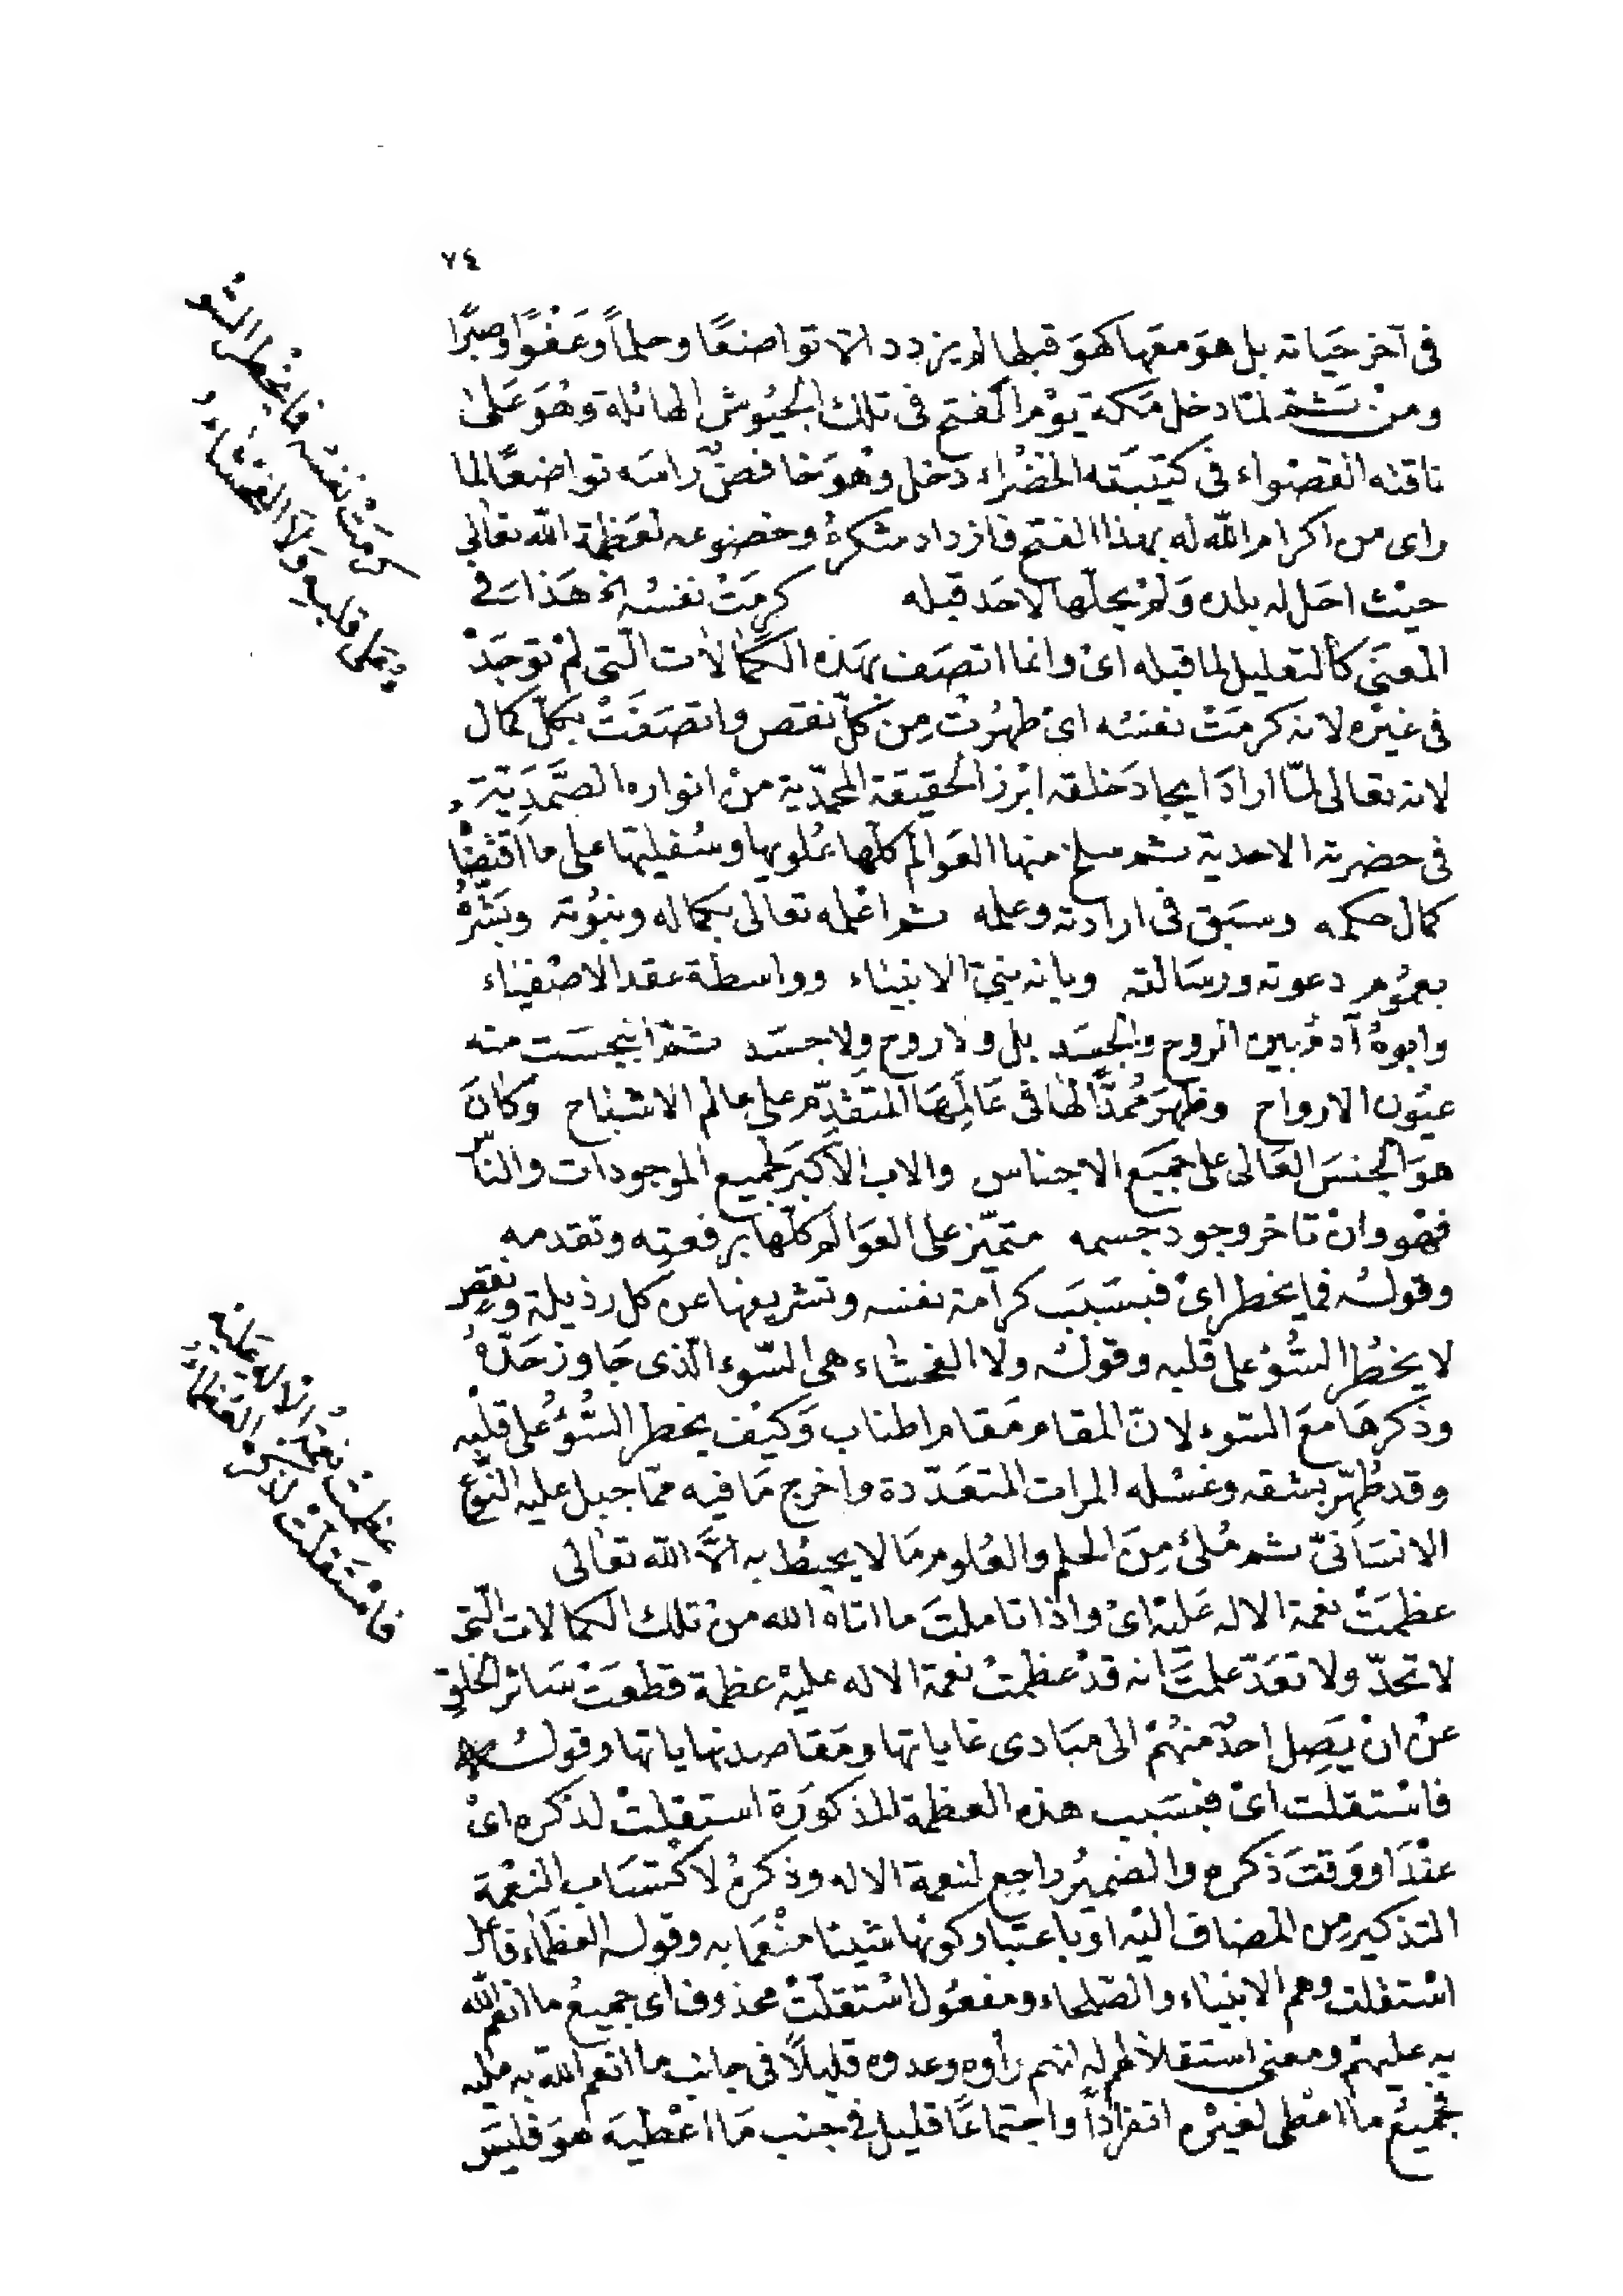 ٧٤
فى آخر حَياته بل هوَ معَها كهوَ قبلها لم يزدد الّا تواضعًا وحلماً وعَفْوًا وصبرًا
ومنْ ثمّ لمّا دخل مَكة يوْم الفتح فى تلك الجيُوش الهائلة وهُوَ عَلىٰ
ناقته القصْواء فى كتيبَته الخضْراء دخل وهْوَ خافضٌ رَاسَه تواضعًا لما
راى من اكرام الله له بهذا الفتح فازداد شكرهُ وخضوعه لعَظمة الله تعالى
حيْث احَل له بلده وَلمْ يحلّها لاحَد قبله كرمَتْ نفسُه الخ هَذا فى
المعنَى كالتعليل لما قبله اىْ وانما اتصَف بهَذه الكمَالات الّتى لمْ توجَدْ
فى غيْره لانه كرمَتْ نفسُه اىْ طهُرتْ مِنْ كلّ نقص واتصَفَتْ بكلّ كمال
لانه تعالى لمّا ارادَ ايجادَ خلقه ابْرز الحقيقة المحمّدية منْ انواره الصَّمَدِيّةِ
فى حضرته الاحدية ثم سلخ منها العَوالم كلّها عُلويها وسُفليها على ما اقتضا
كمال حكمه وسبَق فى ارادته وعلمه ثم اعْلمه تعالى بكماله ونبوُته وبَشّرهُ
بعمُوم دعوته ورسَالته وبانه نبىّ الانبيَاء وواسطة عقد الاصْفيَاء
وابوهُ آدمُ بين الروح والجسَد بل ولا روح ولا جسَد ثمّ انبجسَت منه
عيُون الارواح وظهَرَ مُمدًّا لها فى عَالَمِهَا المتقدّم على عالم الاشباح وَكانَ
هوَ الجنسَ العَالى على جميَع الاجناس والاب الاكبَر لجميع الموجودات والناس
فهْو وانْ تاخر وجود جسمه متميّز على العَوالم كلّها برفعته وتقدمه
وقولهُ فما يخطر اىْ فبسَببَ كرامة نفسه وتشريفها عن كل رذيلة ونقصٍ
لا يخطُر السُّوْ على قلبه وقولهُ ولا الفحشاء هى السّوء الّذى جَاوز حَدّهُ
وذكرهَا معَ السّوء لانّ المقام مَقام اطناب وَكيْف يخطر السُّوءُ على قلبْه
وقد طُهّر بشقه وغسْله المرات المتعَدّدة واخرج مَا فيه ممّا جبل عليه النّوعُ
الانسَانىّ ثم مُلئ مِنَ الحلم والعُلوم مَا لا يحيْطُ به الّا الله تعالى
عظمَتْ نعْمة الاله عَليْه اىْ واذا تاملتَ ما اتاه الله منْ تلك الكمالات الّتى
لا تحدّ ولا تعَدّ علمتَ انه قدْ عظمتْ نعمة الاله عليْه عظمة قطعَتْ سَائر الخلقِ
عنْ انْ يَصِل احدٌ منهُمْ الى مبَادى غاياتها ومَقاصد نهاياتها وقولهُ
فاسْتقلت اىْ فبسَبب هذه العظمة المذكورَة استقلتْ لذكره اىْ
عنْدَ او وَقتَ ذكره والضميْرُ راجع لنعمة الاله وذكرهُ لاكتسَاب النعْمة
التذكير مِن المضاف اليْه او باعتبار كونها شيئا منْعَما به وقوله العظمَاء فاعل
اسْتقلت وهم الانبيَاء والصّلحاء ومفعُول اسْتقلّتْ محذوف اى جميعُ ما انعم الله
به عليهْم ومعنى استقلالهم له انهم راوه وعدوه قليلاً فى جانب ما انعم الله به عليه
فجميعُ ما اعْطى لغيْره انفرَاداً واجتماعًا قليل فى جنب مَا اعْطيَه هوَ فليسَ
كرمَتْ نفسُه فما يخطر السُّوْ
ءُ على قلبه وَلا الفحْشاءُ
عظمتْ نعمةُ الاله عَليْه
فاسْتقلّتْ لذكره العظماءُ